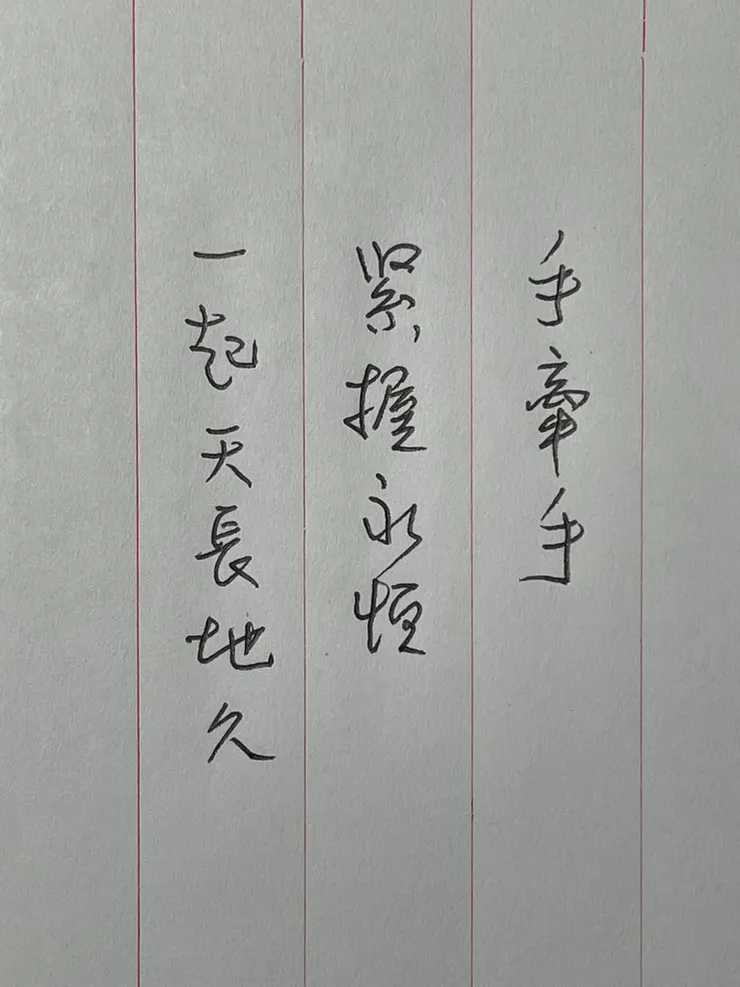 手牽手
紧握永恒
一起天長地久